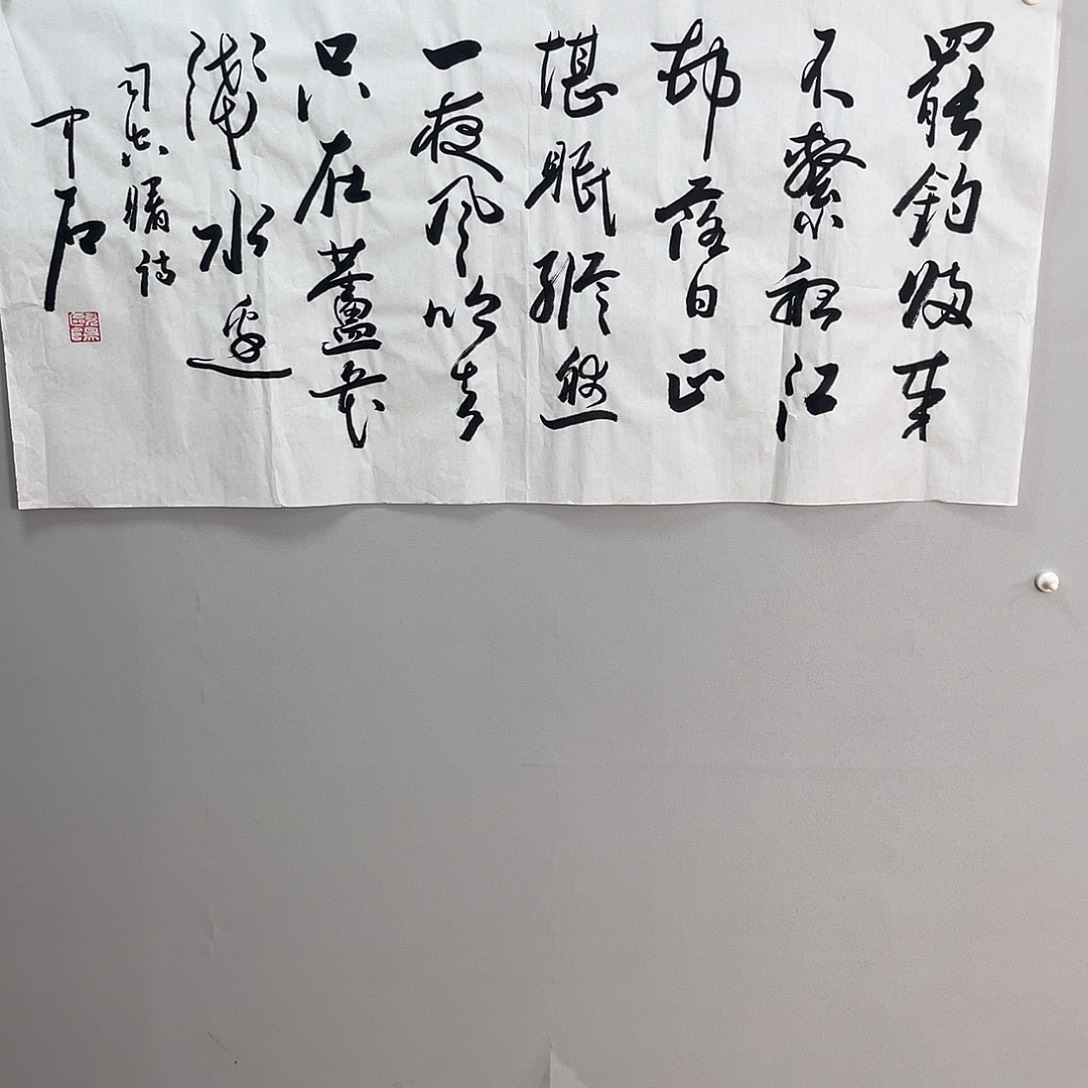 罷釣歸來
不繫船江
邨落日正
堪眠縱然
一夜風吹去
只在蘆花
淺水邊
司空曙詩
中石